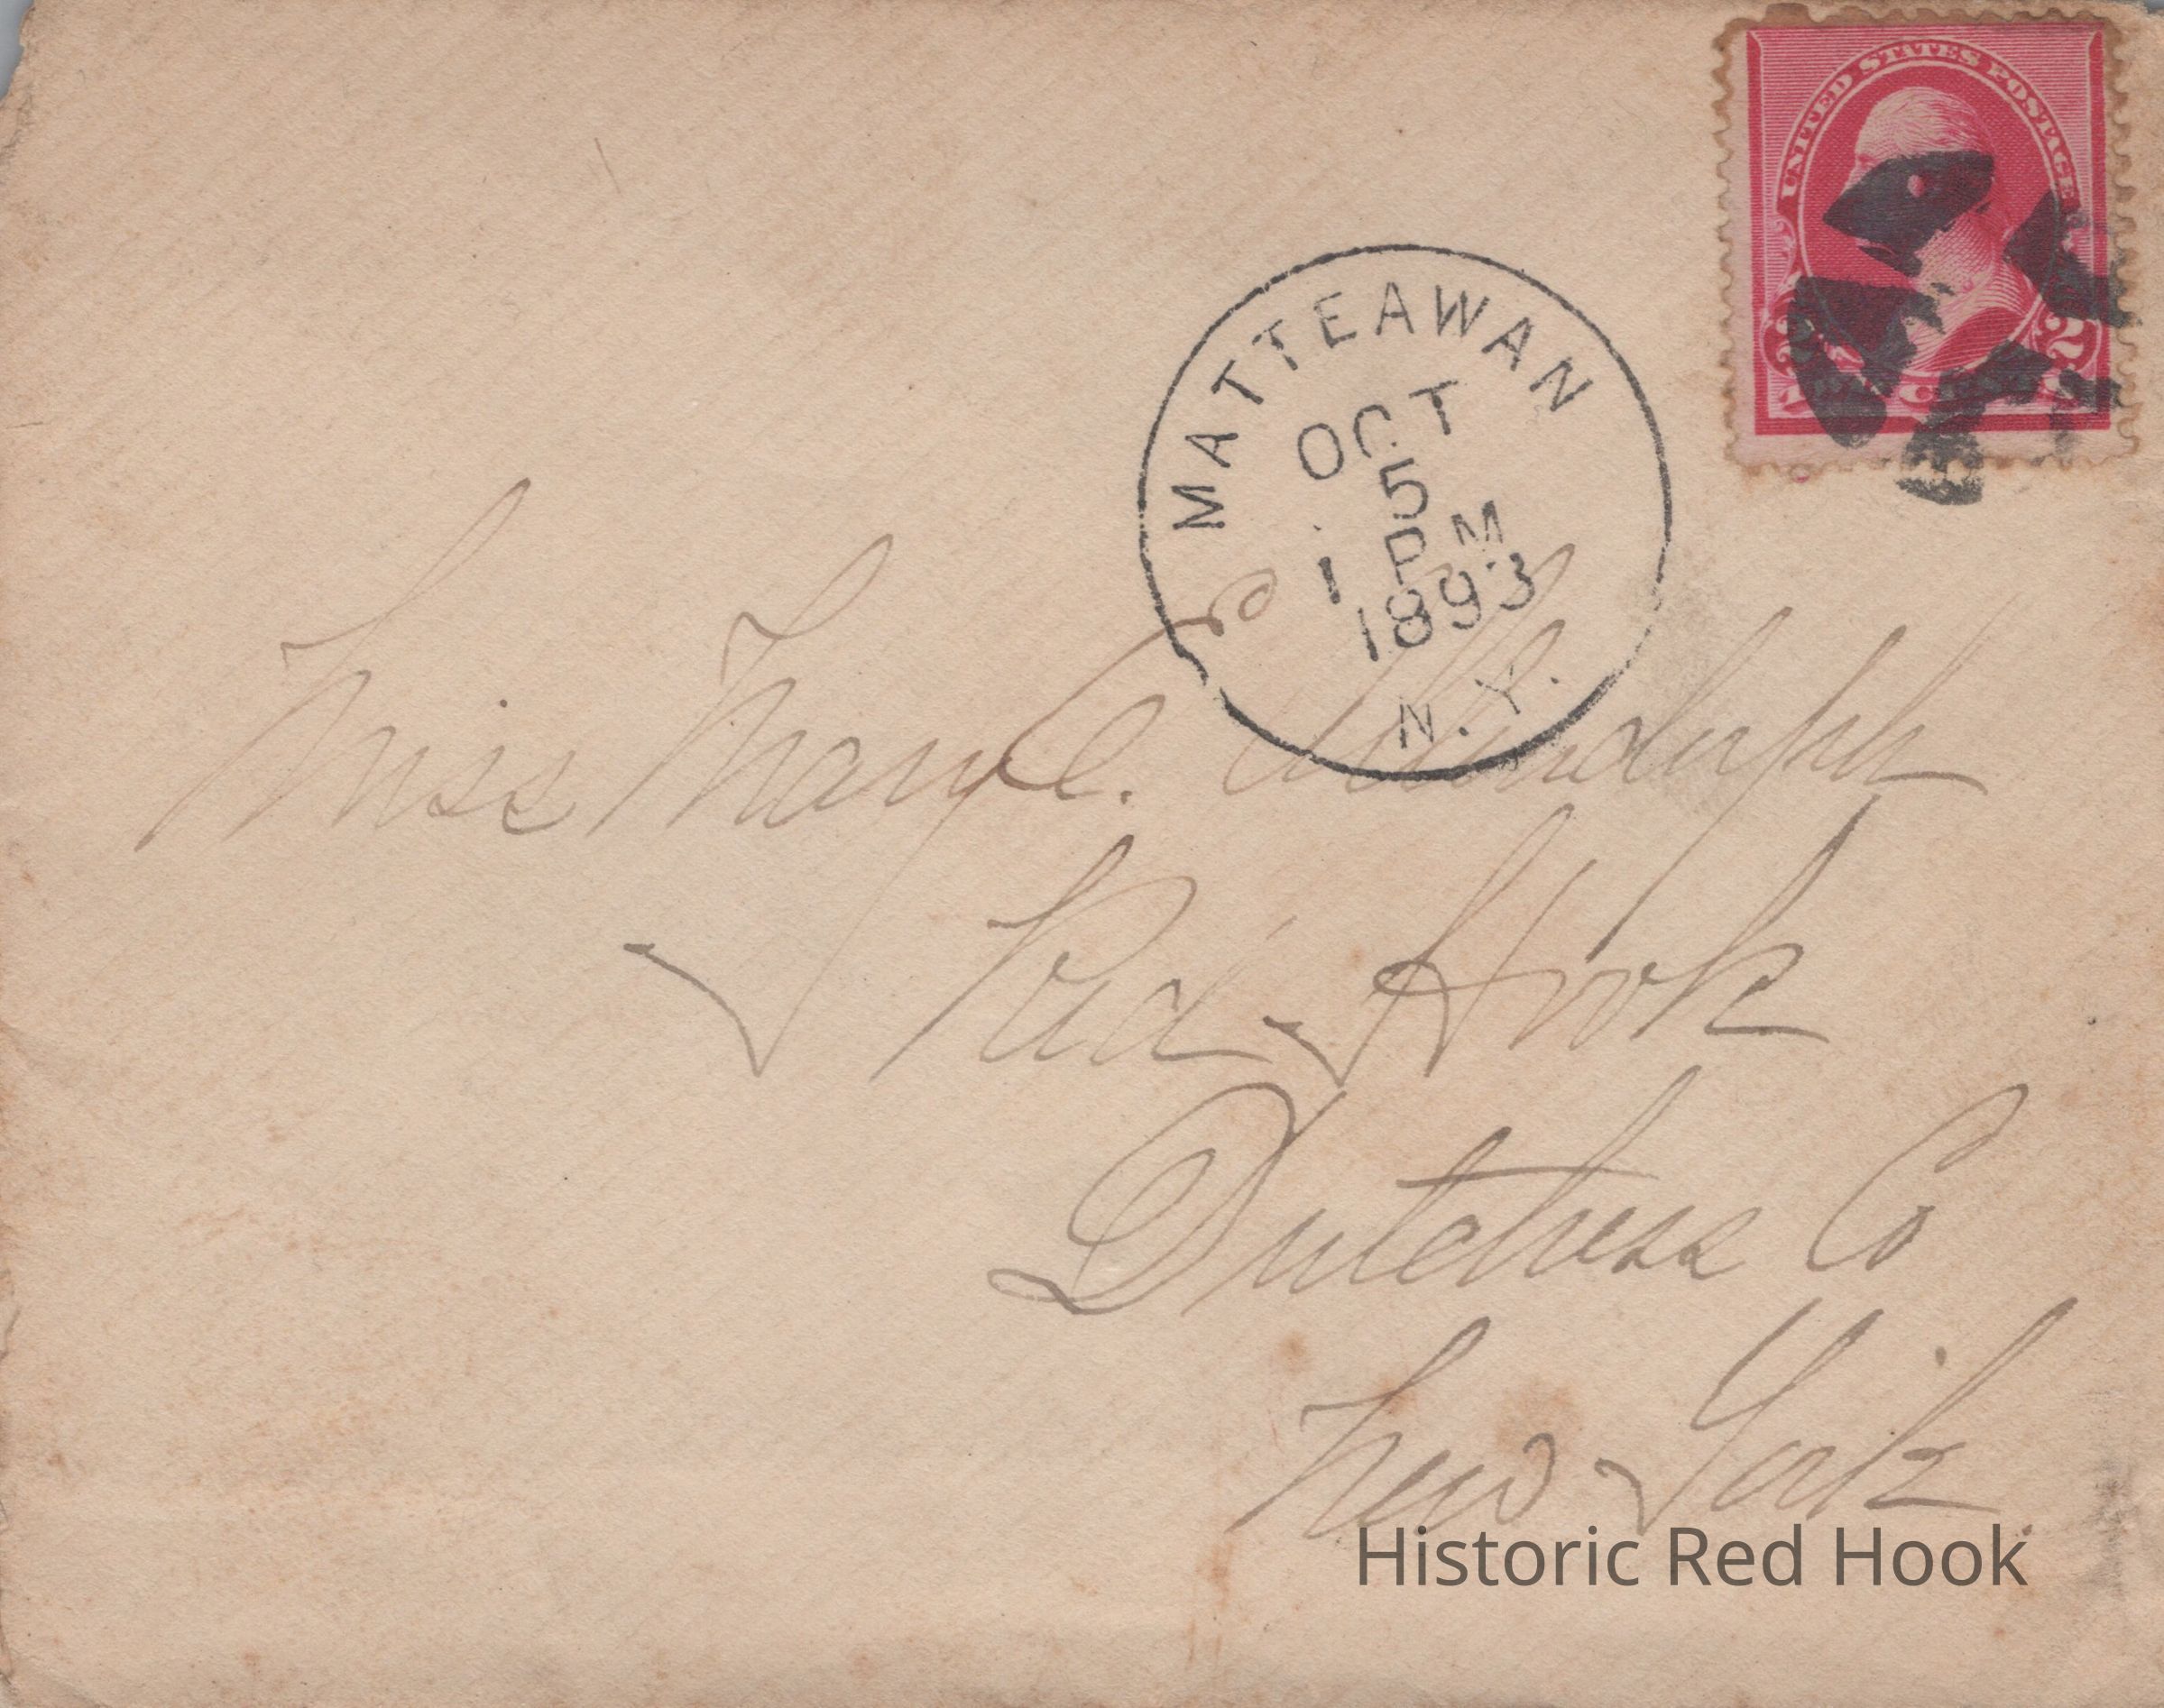 UNITED STATES POSTAGE
2 2
MATTEAWAN
OCT
5
1 PM
1893
N.Y.
Miss Mary C.
Red Hook
Dutchess Co
New York
Historic Red Hook